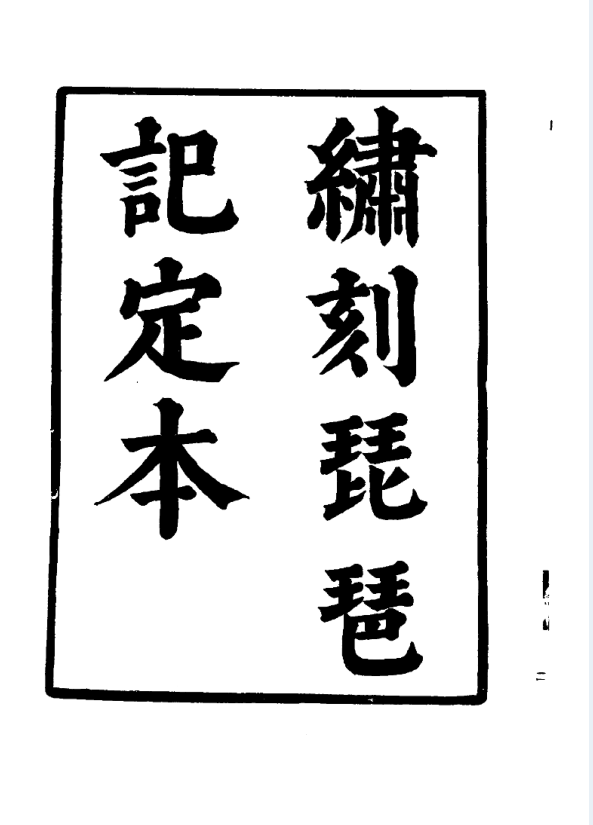 繡刻琵琶
記定本
二